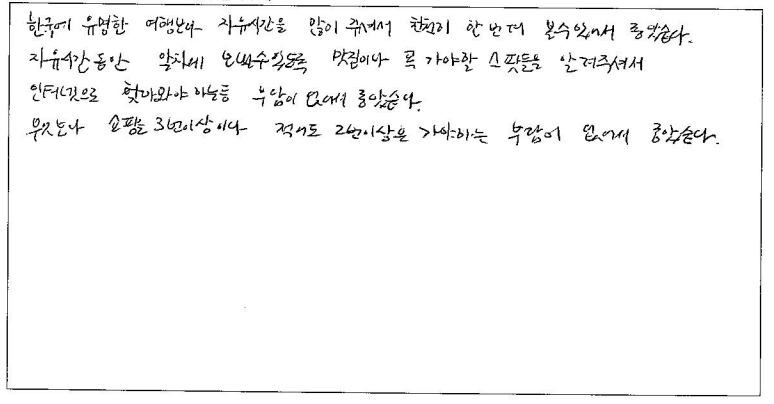 한국에 유명한 여행보다 자유시간을 많이 주셔서 천천히 한번더 볼수있어서 좋았습니다.
자유시간동안 알차게 보낼수있도록 맛집이나 꼭 가야할 스팟들을 알려주셔서
인터넷으로 찾아와야하는 부담이 없어서 좋았습니다.
무엇보다 쇼핑을 3번이상이나 적어도 2번이상은 가야하는 부담이 없어서 좋았습니다.